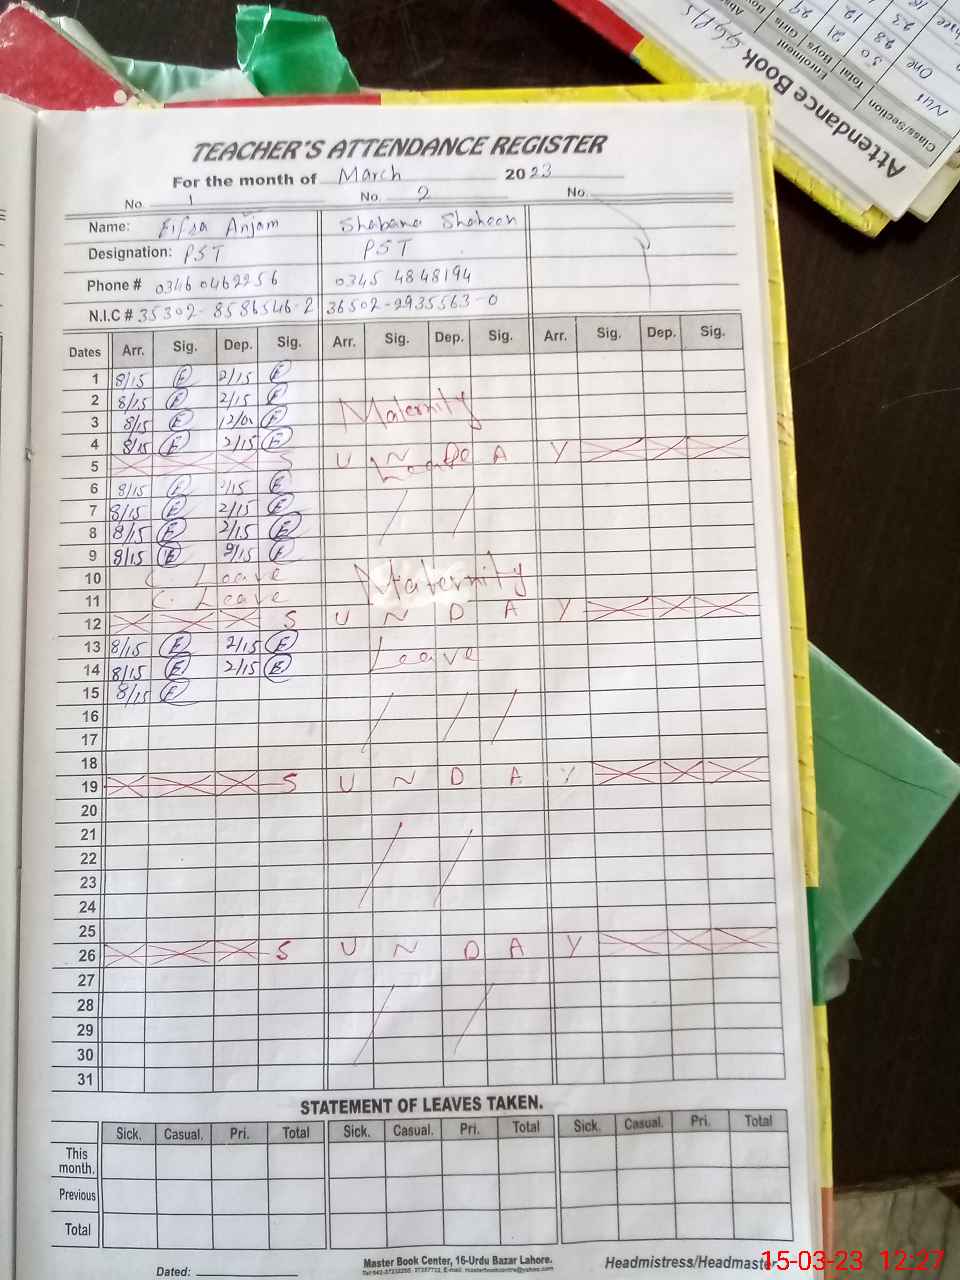 Attendance Book
Class/Section
Enrolment
Total Boys Girls
One
TEACHER'S ATTENDANCE REGISTER
For the month of March 2023
No. 1 No. 2 No.
Name: Anjam Shabana Shaheen
Designation: PST PST
Phone # 0346 0462256 0345 4848194
N.I.C # 35302-8586546-2 36502-2935563-0
Dates Arr. Sig. Dep. Sig. Arr. Sig. Dep. Sig. Arr. Sig. Dep. Sig.
1 8/15 E 2/15 E
2 8/15 E 2/15 E Maternity
3 8/15 E 12/00 E
4 8/15 E 2/15 E
5 S U N D A Y Leave
6 8/15 E 2/15 E
7 8/15 E 2/15 E
8 8/15 E 2/15 E
9 8/15 E 2/15 E
10 C. Leave Maternity
11 C. Leave
12 S U N D A Y
13 8/15 E 2/15 E Leave
14 8/15 E 2/15 E
15 8/15 E
16
17
18
19 S U N D A Y
20
21
22
23
24
25
26 S U N D A Y
27
28
29
30
31
STATEMENT OF LEAVES TAKEN.
Sick. Casual. Pri. Total Sick. Casual. Pri. Total Sick. Casual. Pri. Total
This month.
Previous
Total
Dated: Master Book Center, 16-Urdu Bazar Lahore. Headmistress/Headmaster
15-03-23 12:27